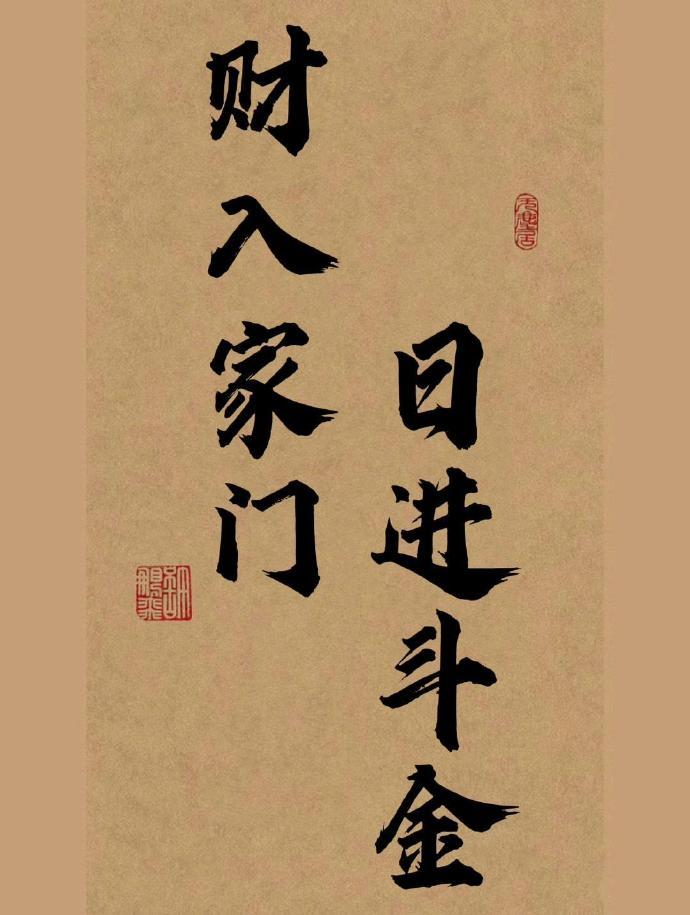 日进斗金
财入家门